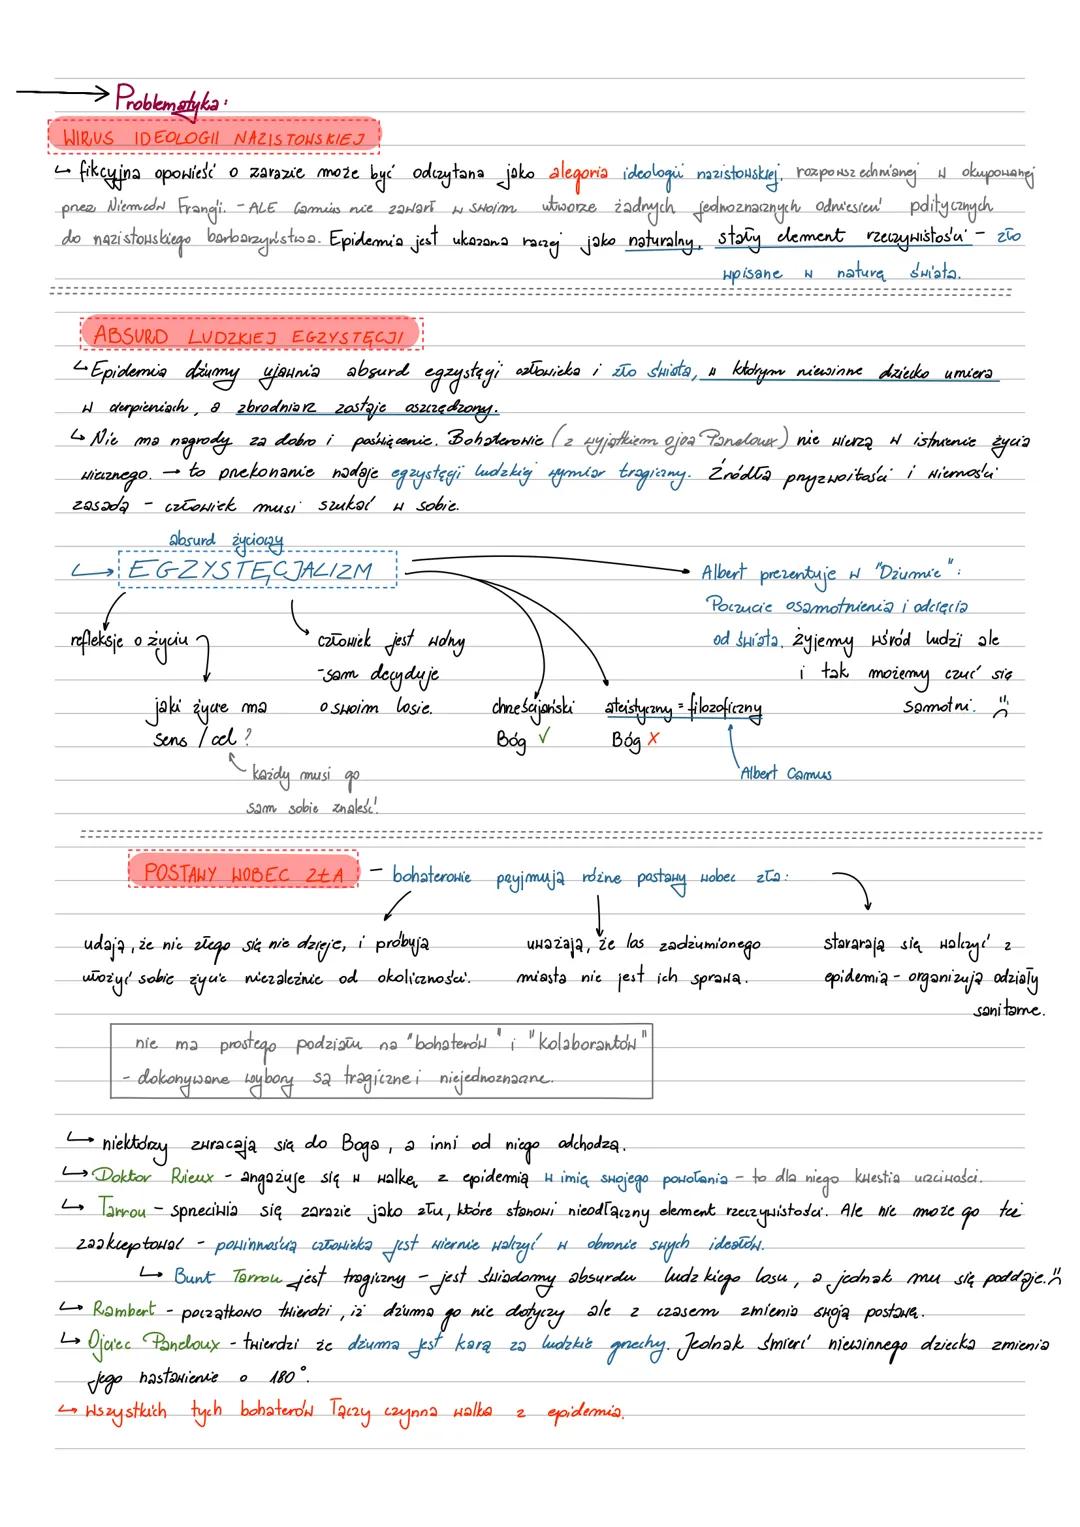 Problematyka:
WIRUS IDEOLOGII NAZISTOWSKIEJ
↳ fikcyjna opowieść o zarazie może być odczytana jako alegoria ideologii nazistowskiej, rozpowszechnianej w okupowanej
przez Niemców Francji. - ALE Camus nie zawarł w swoim utworze żadnych jednoznacznych odniesień politycznych
do nazistowskiego barbarzyństwa. Epidemia jest ukazana raczej jako naturalny, stały element rzeczywistości - zło
wpisane w naturę świata.
ABSURD LUDZKIEJ EGZYSTĘCJI
↳ Epidemia dżumy ujawnia absurd egzystęcji człowieka i zło świata, w którym niewinne dziecko umiera
w cierpieniach, a zbrodniarz zostaje oszczędzony.
↳ Nie ma nagrody za dobro i poświęcenie. Bohaterowie (z wyjątkiem ojca Paneloux) nie wierzą w istnienie życia
wiecznego. → to przekonanie nadaje egzystęcji ludzkiej wymiar tragiczny. Źródła przyzwoitości i wierności
zasadą - człowiek musi szukać w sobie.
absurd życiowy
↳ EGZYSTĘCJALIZM
Albert prezentuje w "Dżumie":
Poczucie osamotnienia i odcięcia
od świata. Żyjemy wśród ludzi ale
i tak możemy czuć się
samotni.
refleksje o życiu
jaki życie ma
sens / cel?
każdy musi go
sam sobie znaleść!
człowiek jest wolny
- sam decyduje
o swoim losie.
chrześcijański
Bóg ✓
ateistyczny = filozoficzny
Bóg X
Albert Camus
POSTAWY WOBEC ZŁA - bohaterowie przyjmują różne postawy wobec zła:
udają, że nic złego się nie dzieje, i próbują
ułożyć sobie życie niezależnie od okoliczności.
uważają, że los zadżumionego
miasta nie jest ich sprawą.
stararają się walczyć z
epidemią - organizują odziały
sanitarne.
nie ma prostego podziału na "bohaterów" i "kolaborantów"
- dokonywane wybory są tragiczne i niejednoznaczne.
↳ niektórzy zwracają się do Boga, a inni od niego odchodzą.
↳ Doktor Rieux - angażuje się w walkę z epidemią w imię swojego powołania - to dla niego kwestia uczciwości.
↳ Tarrou - sprzeciwia się zarazie jako złu, które stanowi nieodłączny element rzeczywistości. Ale nie może go też
zaakceptować - powinnością człowieka jest wiernie walczyć w obronie swych ideałów.
↳ Bunt Tarrou jest tragiczny - jest świadomy absurdu ludzkiego losu, a jednak mu się poddaje.
↳ Rambert - początkowo twierdzi, iż dżuma go nie dotyczy ale z czasem zmienia swoją postawę.
↳ Ojciec Paneloux - twierdzi że dżuma jest karą za ludzkie grzechy. Jednak śmierć niewinnego dziecka zmienia
jego nastawienie o 180°.
↳ Wszystkich tych bohaterów łączy czynna walka z epidemia.